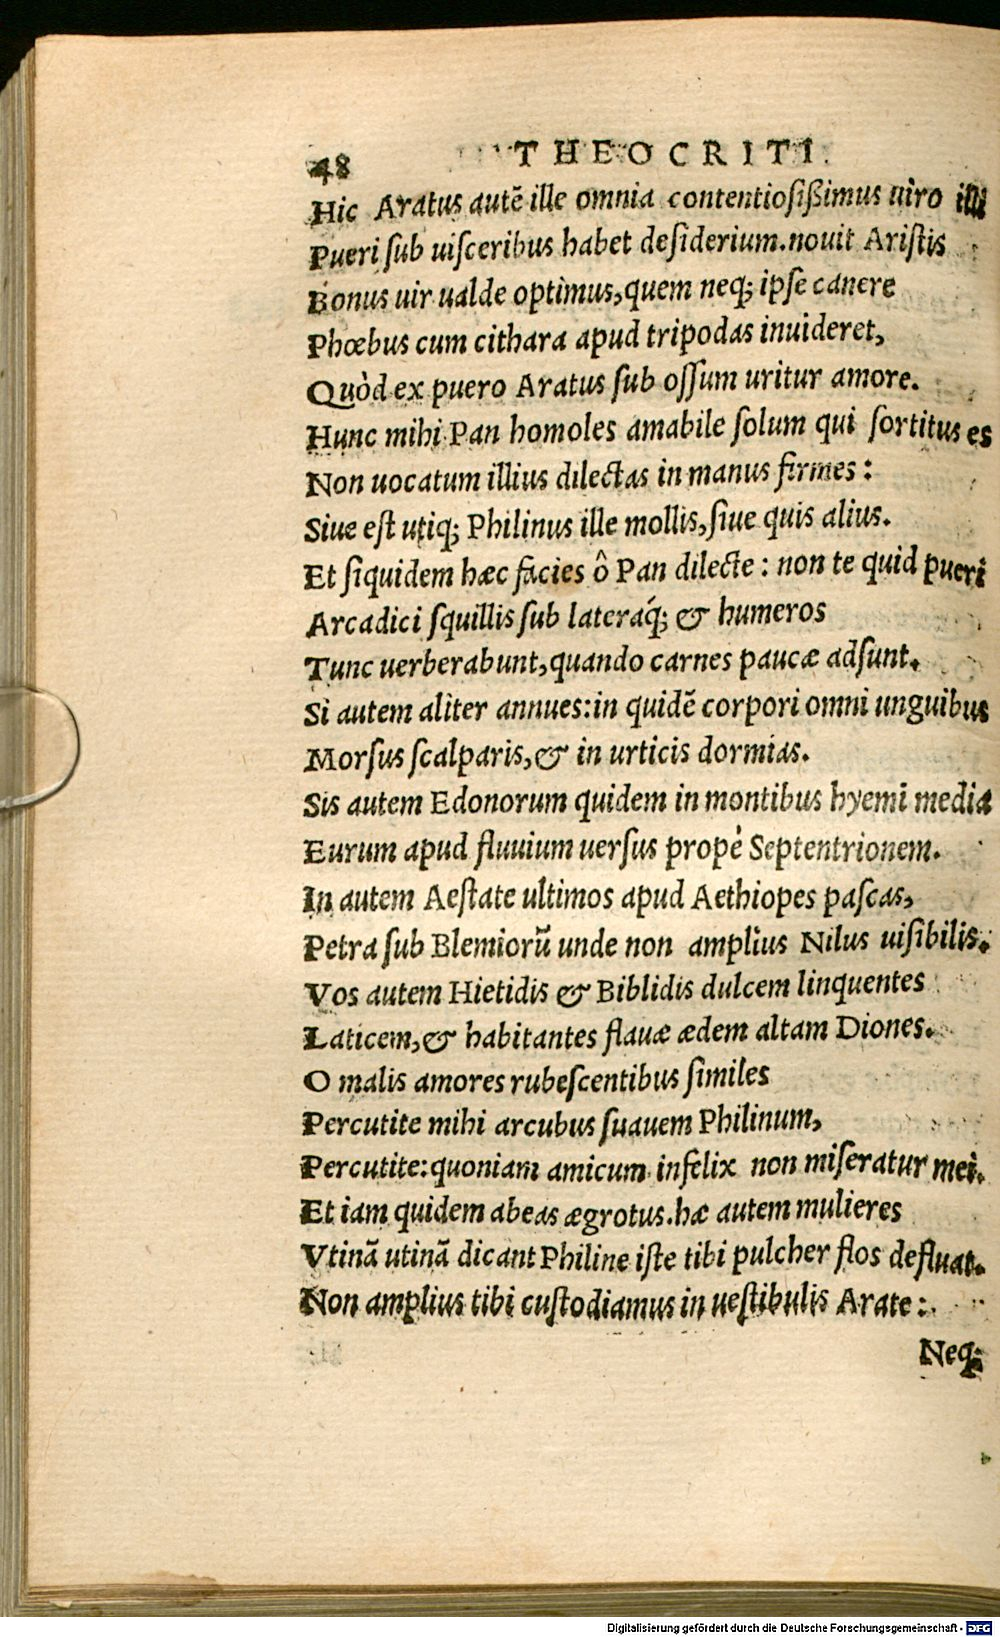 48 THEOCRITI.
Hic Aratus autē ille omnia contentiosißimus uiro illi
Pueri ſub uiſceribus habet deſiderium. nouit Ariſtis
Bonus uir ualde optimus, quem neq; ipſe canere
Phœbus cum cithara apud tripodas inuideret,
Quòd ex puero Aratus ſub oſſum uritur amore.
Hunc mihi Pan homoles amabile ſolum qui ſortitus es
Non uocatum illius dilectas in manus firmes:
Siue eſt utiq; Philinus ille mollis, ſiue quis alius.
Et ſiquidem hæc facies ô Pan dilecte: non te quid pueri
Arcadici ſquillis ſub lateraq́; & humeros
Tunc uerberabunt, quando carnes paucæ adſunt.
Si autem aliter annues: in quidē corpori omni unguibus
Morſus ſcalparis, & in urticis dormias.
Sis autem Edonorum quidem in montibus hyemi media
Eurum apud fluuium uerſus propè Septentrionem.
In autem Aeſtate ultimos apud Aethiopes paſcas,
Petra ſub Blemiorū unde non amplius Nilus uiſibilis.
Vos autem Hietidis & Biblidis dulcem linquentes
Laticem, & habitantes flauæ ædem altam Diones.
O malis amores rubeſcentibus ſimiles
Percutite mihi arcubus ſuauem Philinum,
Percutite: quoniam amicum infelix non miſeratur mei.
Et iam quidem abeas ægrotus. hæ autem mulieres
Vtinā utinā dicant Philine iſte tibi pulcher flos defluat.
Non amplius tibi cuſtodiamus in ueſtibulis Arate:
Neq;
Digitalisierung gefördert durch die Deutsche Forschungsgemeinschaft - DFG